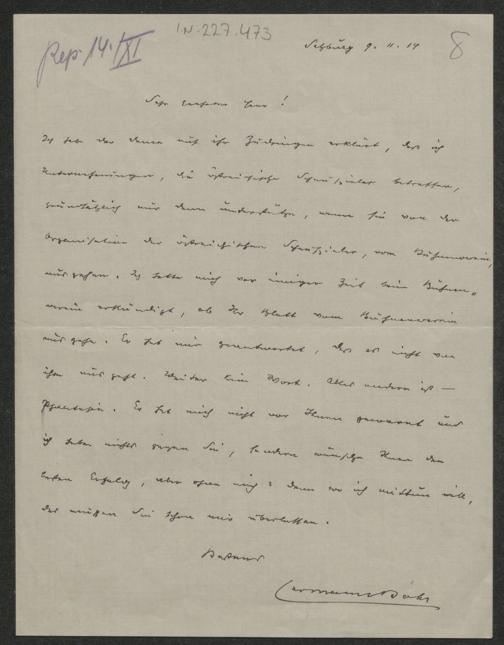 I.N. 227.473
Rep. 14./XI
8
Salzburg 9. 11. 14
Sehr geehrter Herr!
Ich habe der Dame auf ihr Zudringen erklärt, daß ich
Unternehmungen, die östreichische Schauspieler betreffen,
grundsätzlich nur dann unterstütze, wenn sie von der
Organisation der östreichischen Schauspieler, vom Bühnenverein,
ausgehen. Ich hatte mich vor einiger Zeit beim Bühnen-
verein erkundigt, ob Ihr Blatt vom Bühnenverein
ausgehe. Er hat mir geantwortet, daß es nicht von
ihm ausgeht. Weiter kein Wort. Alles andere ist —
Phantasie. Er hat mich nicht vor Ihnen gewarnt und
ich habe nichts gegen Sie, sondern wünsche Ihnen den
besten Erfolg, aber ohne mich: denn wo ich mittun will,
das müßen Sie schon mir überlassen.
Hermann Bahr